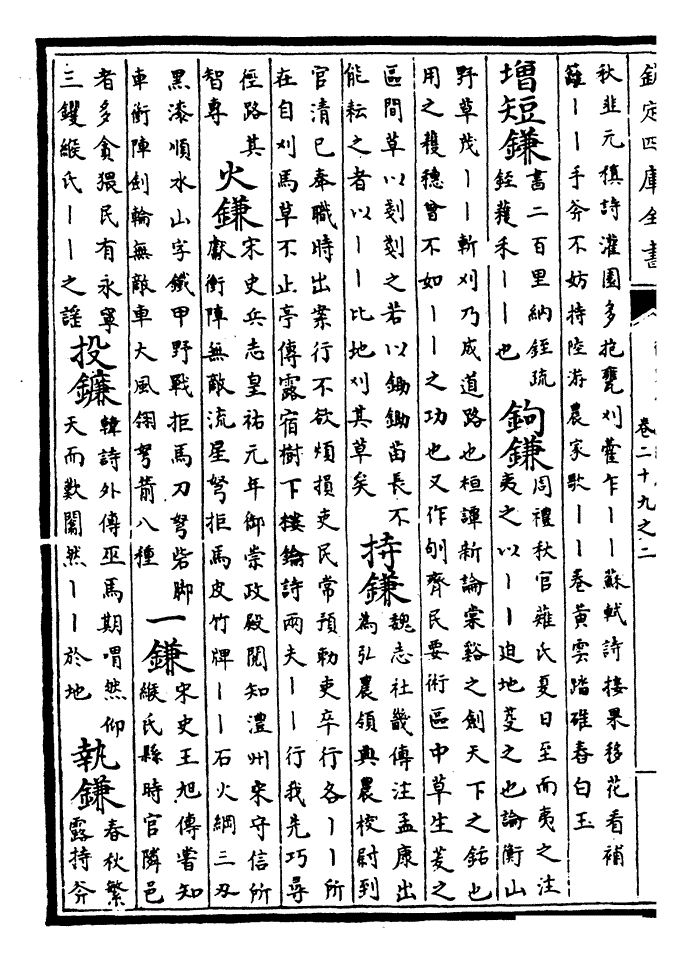 欽定四庫全書
卷二十九之二
秋韭元稹詩灌園多抱甕刈藿乍丨丨蘇軾詩接果移花看補
籬丨丨手斧不妨持陸游農家歌丨丨卷黄雲踏碓舂白玉
增短鎌
書二百里納銍疏
銍穫禾丨丨也
鉤鎌
周禮秋官薙氏夏日至而夷之注
夷之以丨丨迫地芟之也論衡山
野草茂丨丨斬刈乃成道路也桓譚新論棠谿之劍天下之銛也
用之穫穗曾不如丨丨之功也又作刨齊民要術區中草生茇之
區間草以剗剗之若以鋤鋤苗長不
能耘之者以丨丨比地刈其草矣
持鎌
魏志杜畿傳注孟康出
為弘農領典農校尉到
官清已奉職時出案行不欲煩損吏民常預勅吏卒行各丨丨所
在自刈馬草不止亭傳露宿樹下樓鑰詩兩夫丨丨行我先巧尋
徑路其
智專
火鎌
宋史兵志皇祐元年御崇政殿閱知澧州宋守信所
獻衝陣無敵流星弩拒馬皮竹牌丨丨石火綱三刃
黑漆順水山字鐵甲野戰拒馬刀弩砦脚
車衝陣劍輪無敵車大風翎弩箭八種
一鎌
宋史王旭傳嘗知
緱氏縣時官隣邑
者多貪猥民有永寧
三钁緱氏丨丨之謠
投鎌
韓詩外傳巫馬期喟然仰
天而歎闟然丨丨於地
執鎌
春秋繁
露持斧